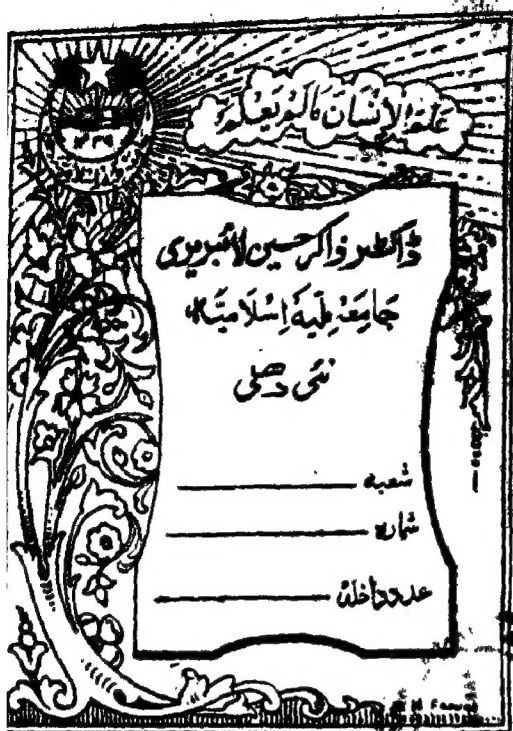 علم الإنسان ما لم يعلم
ڈاکٹر ذاکر حسین لائبریری
جَامعَہ مِلّیہ اِسْلامیَّہ
نئی دھلی
شعبہ
شمارہ
عدد داخلہ